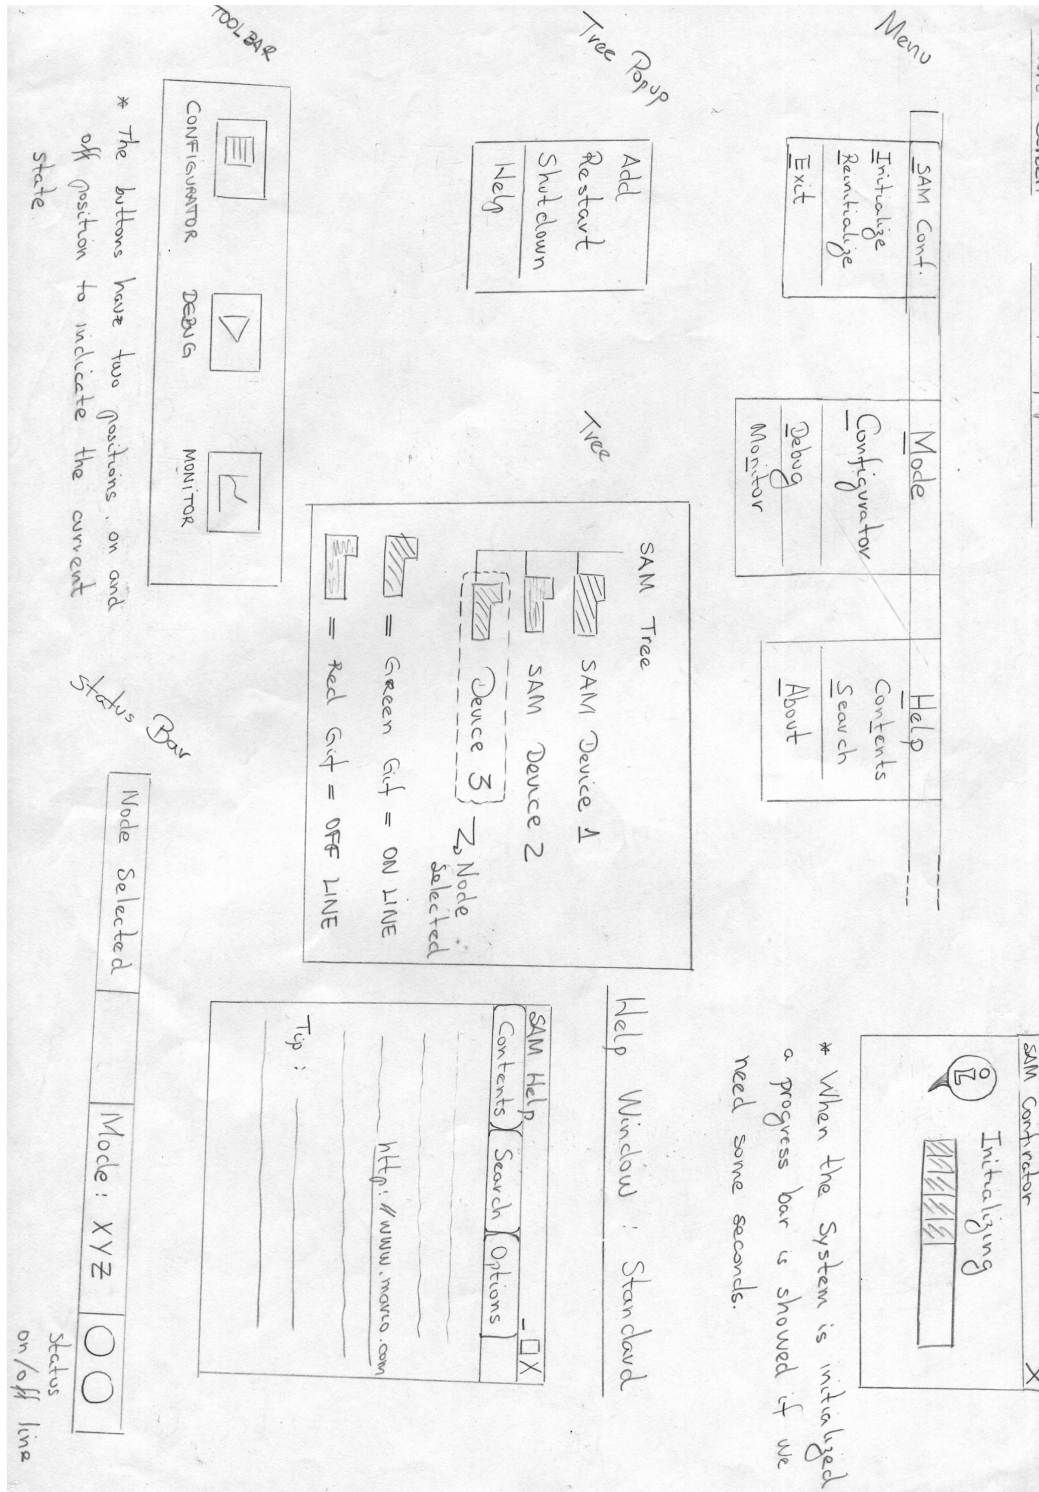 Menu
SAM Conf.
Initialize
Reinitialize
Exit
Mode
Configurator
Debug
Monitor
Help
Contents
Search
About
SAM Confirator X
Initializing
* When the System is initialized
a progress bar is showed if we
need some seconds.
Tree Popup
Add
Restart
Shutdown
Help
Tree
SAM Tree
SAM Device 1
SAM Device 2
Device 3
Node
selected
= Green Gif = ON LINE
= Red Gif = OFF LINE
Help Window : Standard
SAM Help _ □ X
Contents Search Options
http://www.mario.com
Tip :
TOOLBAR
CONFIGURATOR DEBUG MONITOR
* The buttons have two positions, on and
off position to indicate the current
state.
Status Bar
Node Selected Mode: XYZ
Status
on/off line